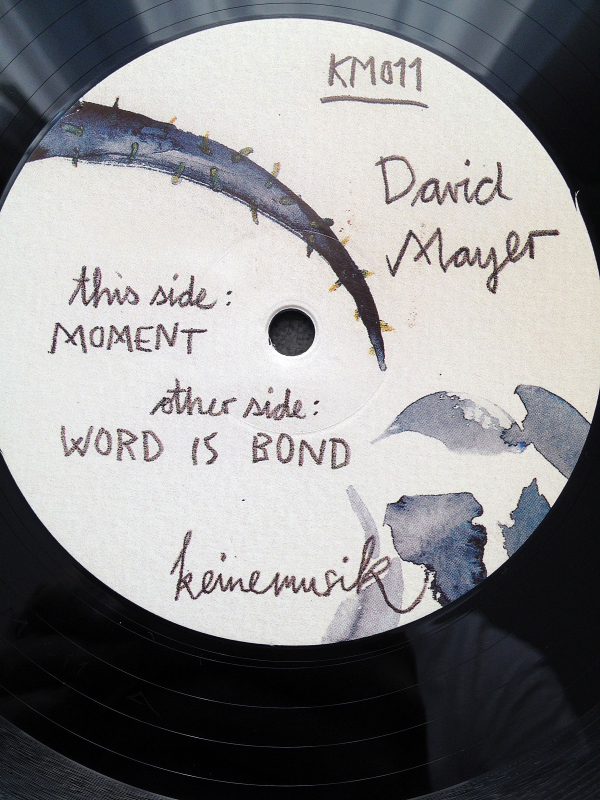 KM011
David
Mayer
this side:
MOMENT
other side:
WORD IS BOND
keinemusik